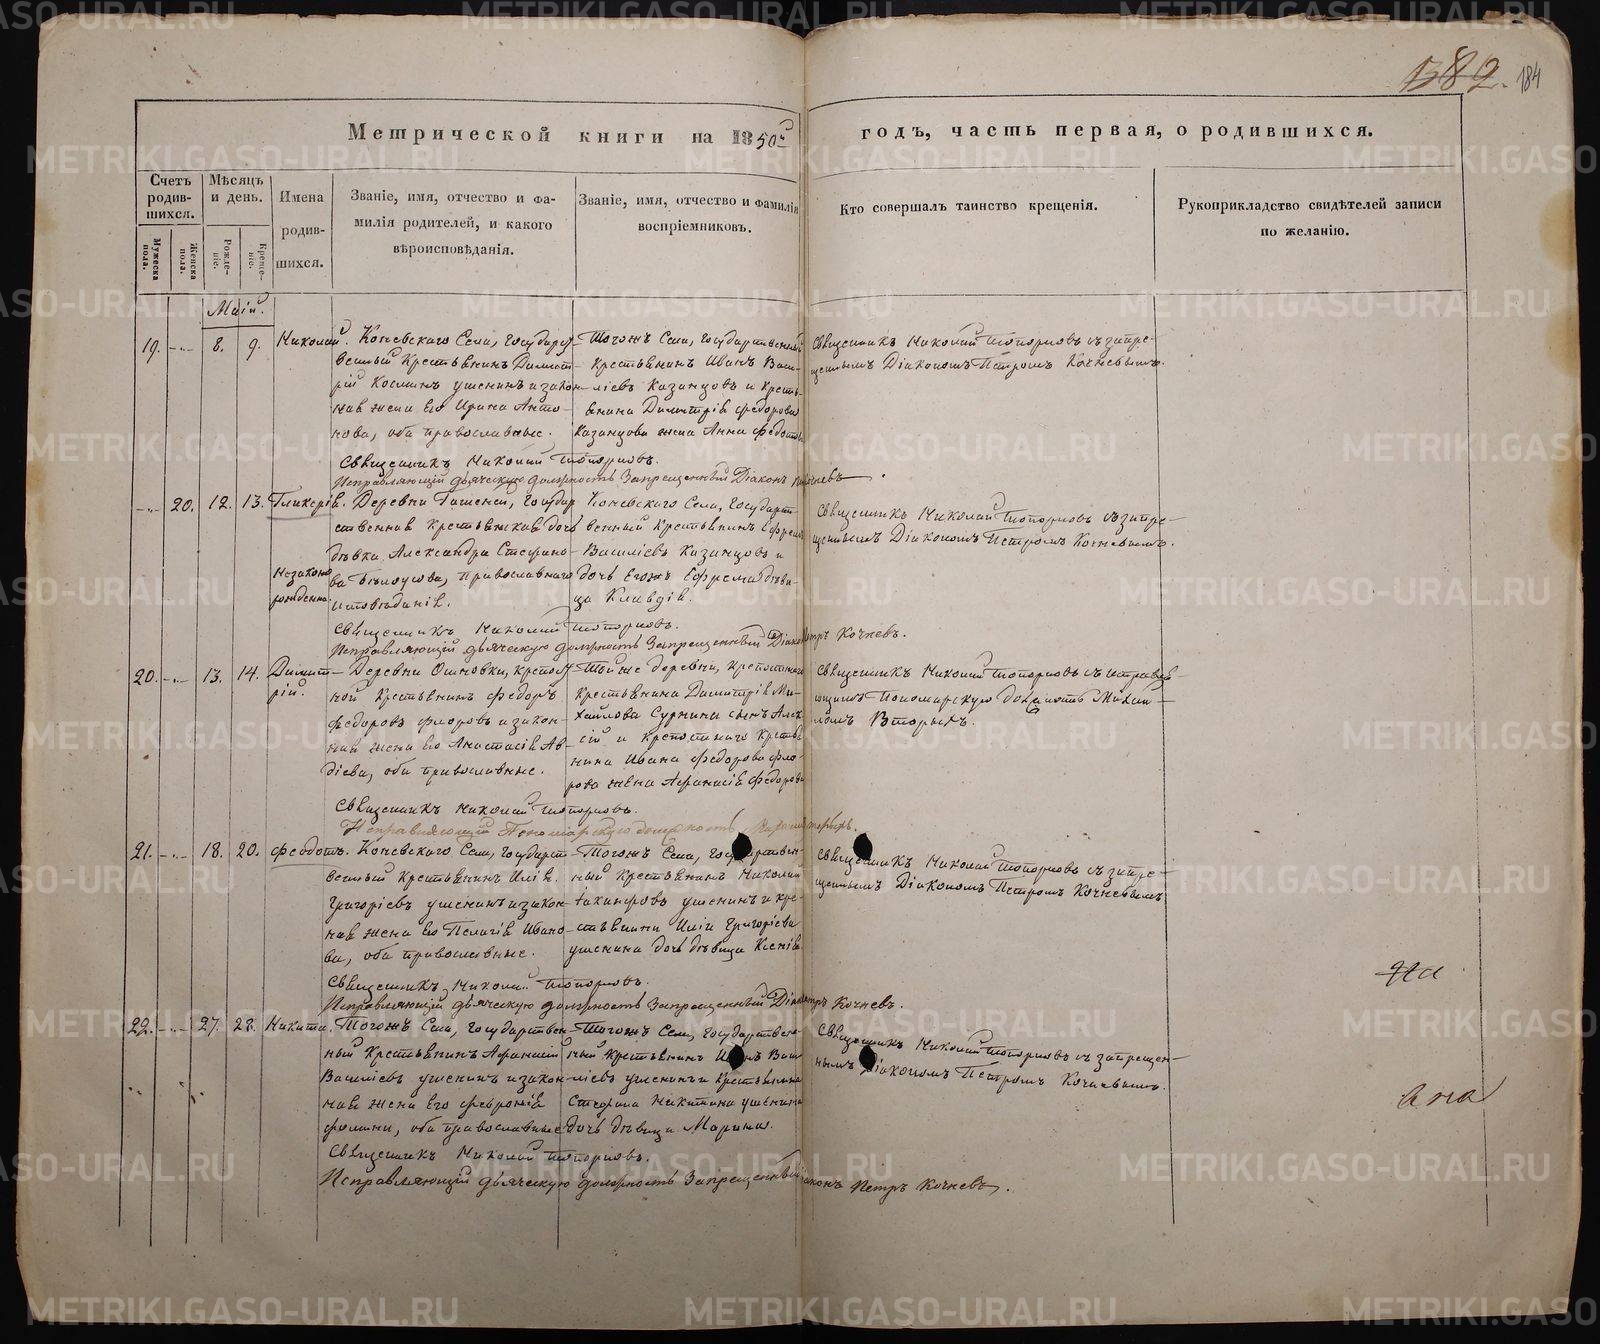 582. 184
Метрической книги на 1850й годъ, часть первая, о родившихся.
Счетъ родив- шихся.
Мѣсяцъ и день.
Имена родив- шихся.
Званіе, имя, отчество и фа-
милія родителей, и какого
вѣроисповѣданія.
Званіе, имя, отчество и фамилія
воспріемниковъ.
Кто совершалъ таинство крещенія.
Рукоприкладство свидѣтелей записи
по желанію.
Мужеска пола.
Женска пола.
Рожде- ніе.
Креще- ніе.
Маій.
19. 8. 9. Николай.
Коневскаго Села, государст-
венный Крестьянинъ Димит-
рій Косминъ Ушенинъ и закон-
ная жена его Ирина Анто-
нова, оба православные.
Тогожъ Села, государственный
крестьянинъ Иванъ Васи-
ліевъ Казанцовъ и кресть-
янина Димитрія Федорова
Казанцова жена Анна Федотова
Священникъ Николай Топорковъ съ запре-
щеннымъ Діакономъ Петромъ Кочневымъ.
Священникъ Николай Топорковъ.
Исправляющій дьяческую должность Запрещенный Діаконъ Кочневъ.
20. 12. 13. Гликерія.
незаконно рожденна.
Деревни Гашеней, государ-
ственная крестьянская дочь
дѣвка Александра Стефано-
ва Бѣлоусова, православнаго
исповѣданія.
Коневскаго Села, государст-
венный крестьянинъ Ефремъ
Василіевъ Казанцовъ и
дочь Егожъ Ефрема дѣви-
ца Клавдія.
Священникъ Николай Топорковъ съ запре-
щеннымъ Діакономъ Петромъ Кочневымъ.
Священникъ Николай Топорковъ.
Исправляющій дьяческую должность Запрещенный Діаконъ Петръ Кочневъ.
20. 13. 14. Димит-
рій.
Деревни Осиновки, крѣпост-
ной крестьянинъ Федоръ
Федоровъ Флоровъ и закон-
ная жена его Анастасія Ав-
діева, оба православные.
Тойже деревни, крѣпостнаго
крестьянина Димитрія Ми-
хайлова Сурнина сынъ Алек-
сій и крѣпостнаго крестья-
нина Ивана Федорова Фло-
рова жена Афанасія Федорова
Священникъ Николай Топорковъ съ исправля-
ющимъ Пономарскую должность Михаи-
ломъ Вторыхъ.
Священникъ Николай Топорковъ.
Исправляющій Пономарскую должность
21. 18. 20. Феодотъ.
Коневскаго Села, государст-
венный крестьянинъ Илія
Григоріевъ Ушенинъ и закон-
ная жена его Пелагія Ивано-
ва, оба православные.
Тогожъ Села, государствен-
ный крестьянинъ Николай
Іакинфовъ Ушенинъ и кре-
стьянина Иліи Григоріева
Ушенина дочь дѣвица Ксенія
Священникъ Николай Топорковъ съ запре-
щеннымъ Діакономъ Петромъ Кочневымъ
Священникъ Николай Топорковъ.
Исправляющій дьяческую должность Запрещенный Діаконъ Петръ Кочневъ.
22. 27. 28. Никита.
Тогожъ Села, государствен-
ный крестьянинъ Афанасій
Василіевъ Ушенинъ и закон-
ная жена его Февронія
Фомина, оба православные
Тогожъ Села, государствен-
ный крестьянинъ Иванъ Васи-
ліевъ Ушенинъ и крестьянина
Стефана Никитина Ушенина
дочь дѣвица Марина.
Священникъ Николай Топорковъ съ запрещен-
нымъ Діакономъ Петромъ Кочневымъ.
Священникъ Николай Топорковъ.
Исправляющій дьяческую должность Запрещенный Діаконъ Петръ Кочневъ.
METRIKI.GASO-URAL.RU